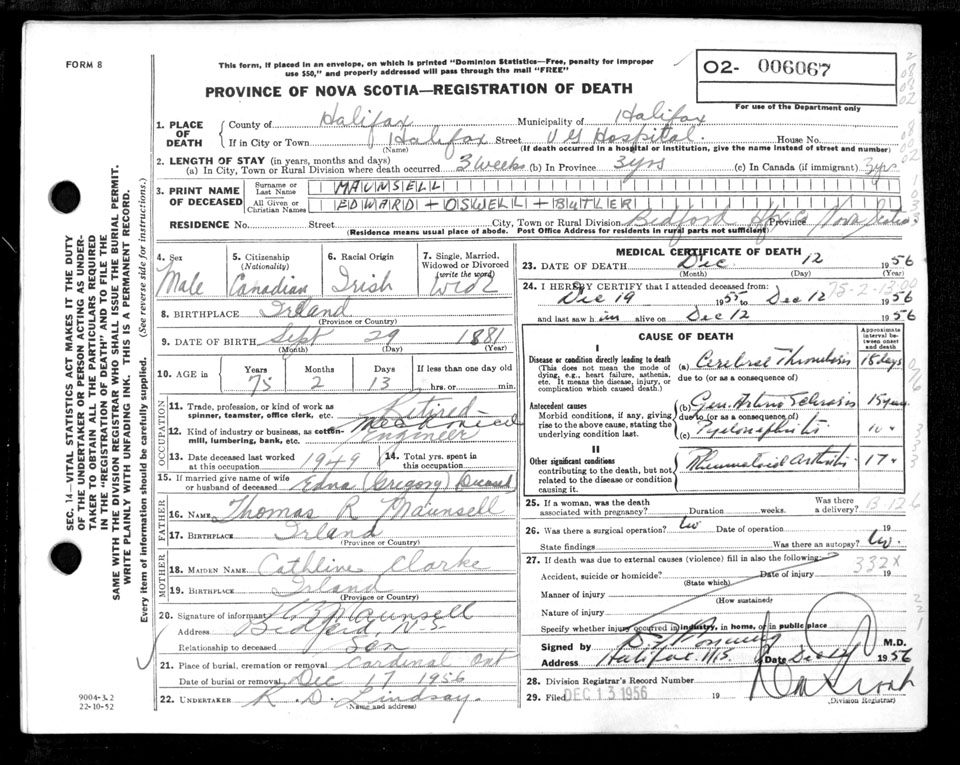 FORM 8
This form, if placed in an envelope, on which is printed "Dominion Statistics—Free, penalty for improper
use $50," and properly addressed will pass through the mail "FREE"
PROVINCE OF NOVA SCOTIA—REGISTRATION OF DEATH
O2- 006067
For use of the Department only
1. PLACE OF DEATH
County of Halifax Municipality of Halifax
If in City or Town Halifax Street V G Hospital. House No.
(Name) (If death occurred in a hospital or institution, give the name instead of street and number)
2. LENGTH OF STAY (in years, months and days)
(a) In City, Town or Rural Division where death occurred 3 weeks (b) In Province 3 yrs (c) In Canada (if immigrant) 3 yrs
3. PRINT NAME OF DECEASED
Surname or Last Name MAUNSELL
All Given or Christian Names EDWARD + OSWELL + BUTLER
RESIDENCE No. Street City, Town or Rural Division Bedford Hfx Co Province Nova Scotia
(Residence means usual place of abode. Post Office Address for residents in rural parts not sufficient)
4. Sex Male
5. Citizenship (Nationality) Canadian
6. Racial Origin Irish
7. Single, Married, Widowed or Divorced (write the word) Wid
8. BIRTHPLACE Irland
(Province or Country)
9. DATE OF BIRTH Sept 29 1881
(Month) (Day) (Year)
10. AGE in Years Months Days If less than one day old
75 2 13 hrs. or min.
OCCUPATION
11. Trade, profession, or kind of work as spinner, teamster, office clerk, etc. Retired
12. Kind of industry or business, as cotton-mill, lumbering, bank, etc. Mechanical Engineer
13. Date deceased last worked at this occupation 1949
14. Total yrs. spent in this occupation
15. If married give name of wife or husband of deceased Edna (Gregory)
FATHER
16. NAME Thomas R Maunsell
17. BIRTHPLACE Irland
(Province or Country)
MOTHER
18. MAIDEN NAME Cathline Clarke
19. BIRTHPLACE Irland
(Province or Country)
20. Signature of informant Maunsell
Address Bedford, N-S
Relationship to deceased Son
21. Place of burial, cremation or removal Cardinal Ont
Date of burial or removal Dec 17 1956
22. UNDERTAKER R. D. Lindsay.
(Name and address)
MEDICAL CERTIFICATE OF DEATH
23. DATE OF DEATH Dec. 12 1956
(Month) (Day) (Year)
24. I HEREBY CERTIFY that I attended deceased from 75-2-13.00
Dec 19 1955 to Dec 12 1956
and last saw him alive on Dec 12 1956
CAUSE OF DEATH
Approximate interval between onset and death
I
Disease or condition directly leading to death
(This does not mean the mode of dying, e.g., heart failure, asthenia, etc. It means the disease, injury, or complication which caused death.)
(a) Cerebral Thrombosis 18 days
due to (or as a consequence of)
Antecedent causes
Morbid conditions, if any, giving rise to the above cause, stating the underlying condition last.
(b) Gen. Arterio Sclerosis 15 years
due to (or as a consequence of)
(c) Pyelonephritis 10 "
II
Other significant conditions
contributing to the death, but not related to the disease or condition causing it.
Rheumatoid Arthritis 17 "
25. If a woman, was the death associated with pregnancy? Duration weeks. Was there a delivery? B-12 6
26. Was there a surgical operation? Date of operation 19
State findings Was there an autopsy?
27. If death was due to external causes (violence) fill in also the following: 332X
Accident, suicide or homicide? Date of injury 19
(State which)
Manner of injury
(How sustained)
Nature of injury
Specify whether injury occurred in industry, in home, or in public place
Signed by M.D.
Address Halifax N.S. Date Dec 1956
28. Division Registrar's Record Number
29. Filed DEC 13 1956 19
(Division Registrar)
SEC. 14—VITAL STATISTICS ACT MAKES IT THE DUTY
OF THE UNDERTAKER OR PERSON ACTING AS UNDER-
TAKER TO OBTAIN ALL THE PARTICULARS REQUIRED
IN THE "REGISTRATION OF DEATH" AND TO FILE THE
SAME WITH THE DIVISION REGISTRAR WHO SHALL ISSUE THE BURIAL PERMIT.
WRITE PLAINLY WITH UNFADING INK. THIS IS A PERMANENT RECORD.
Every item of information should be carefully supplied. (See reverse side for instructions.)
9004-3.2
22-10-52